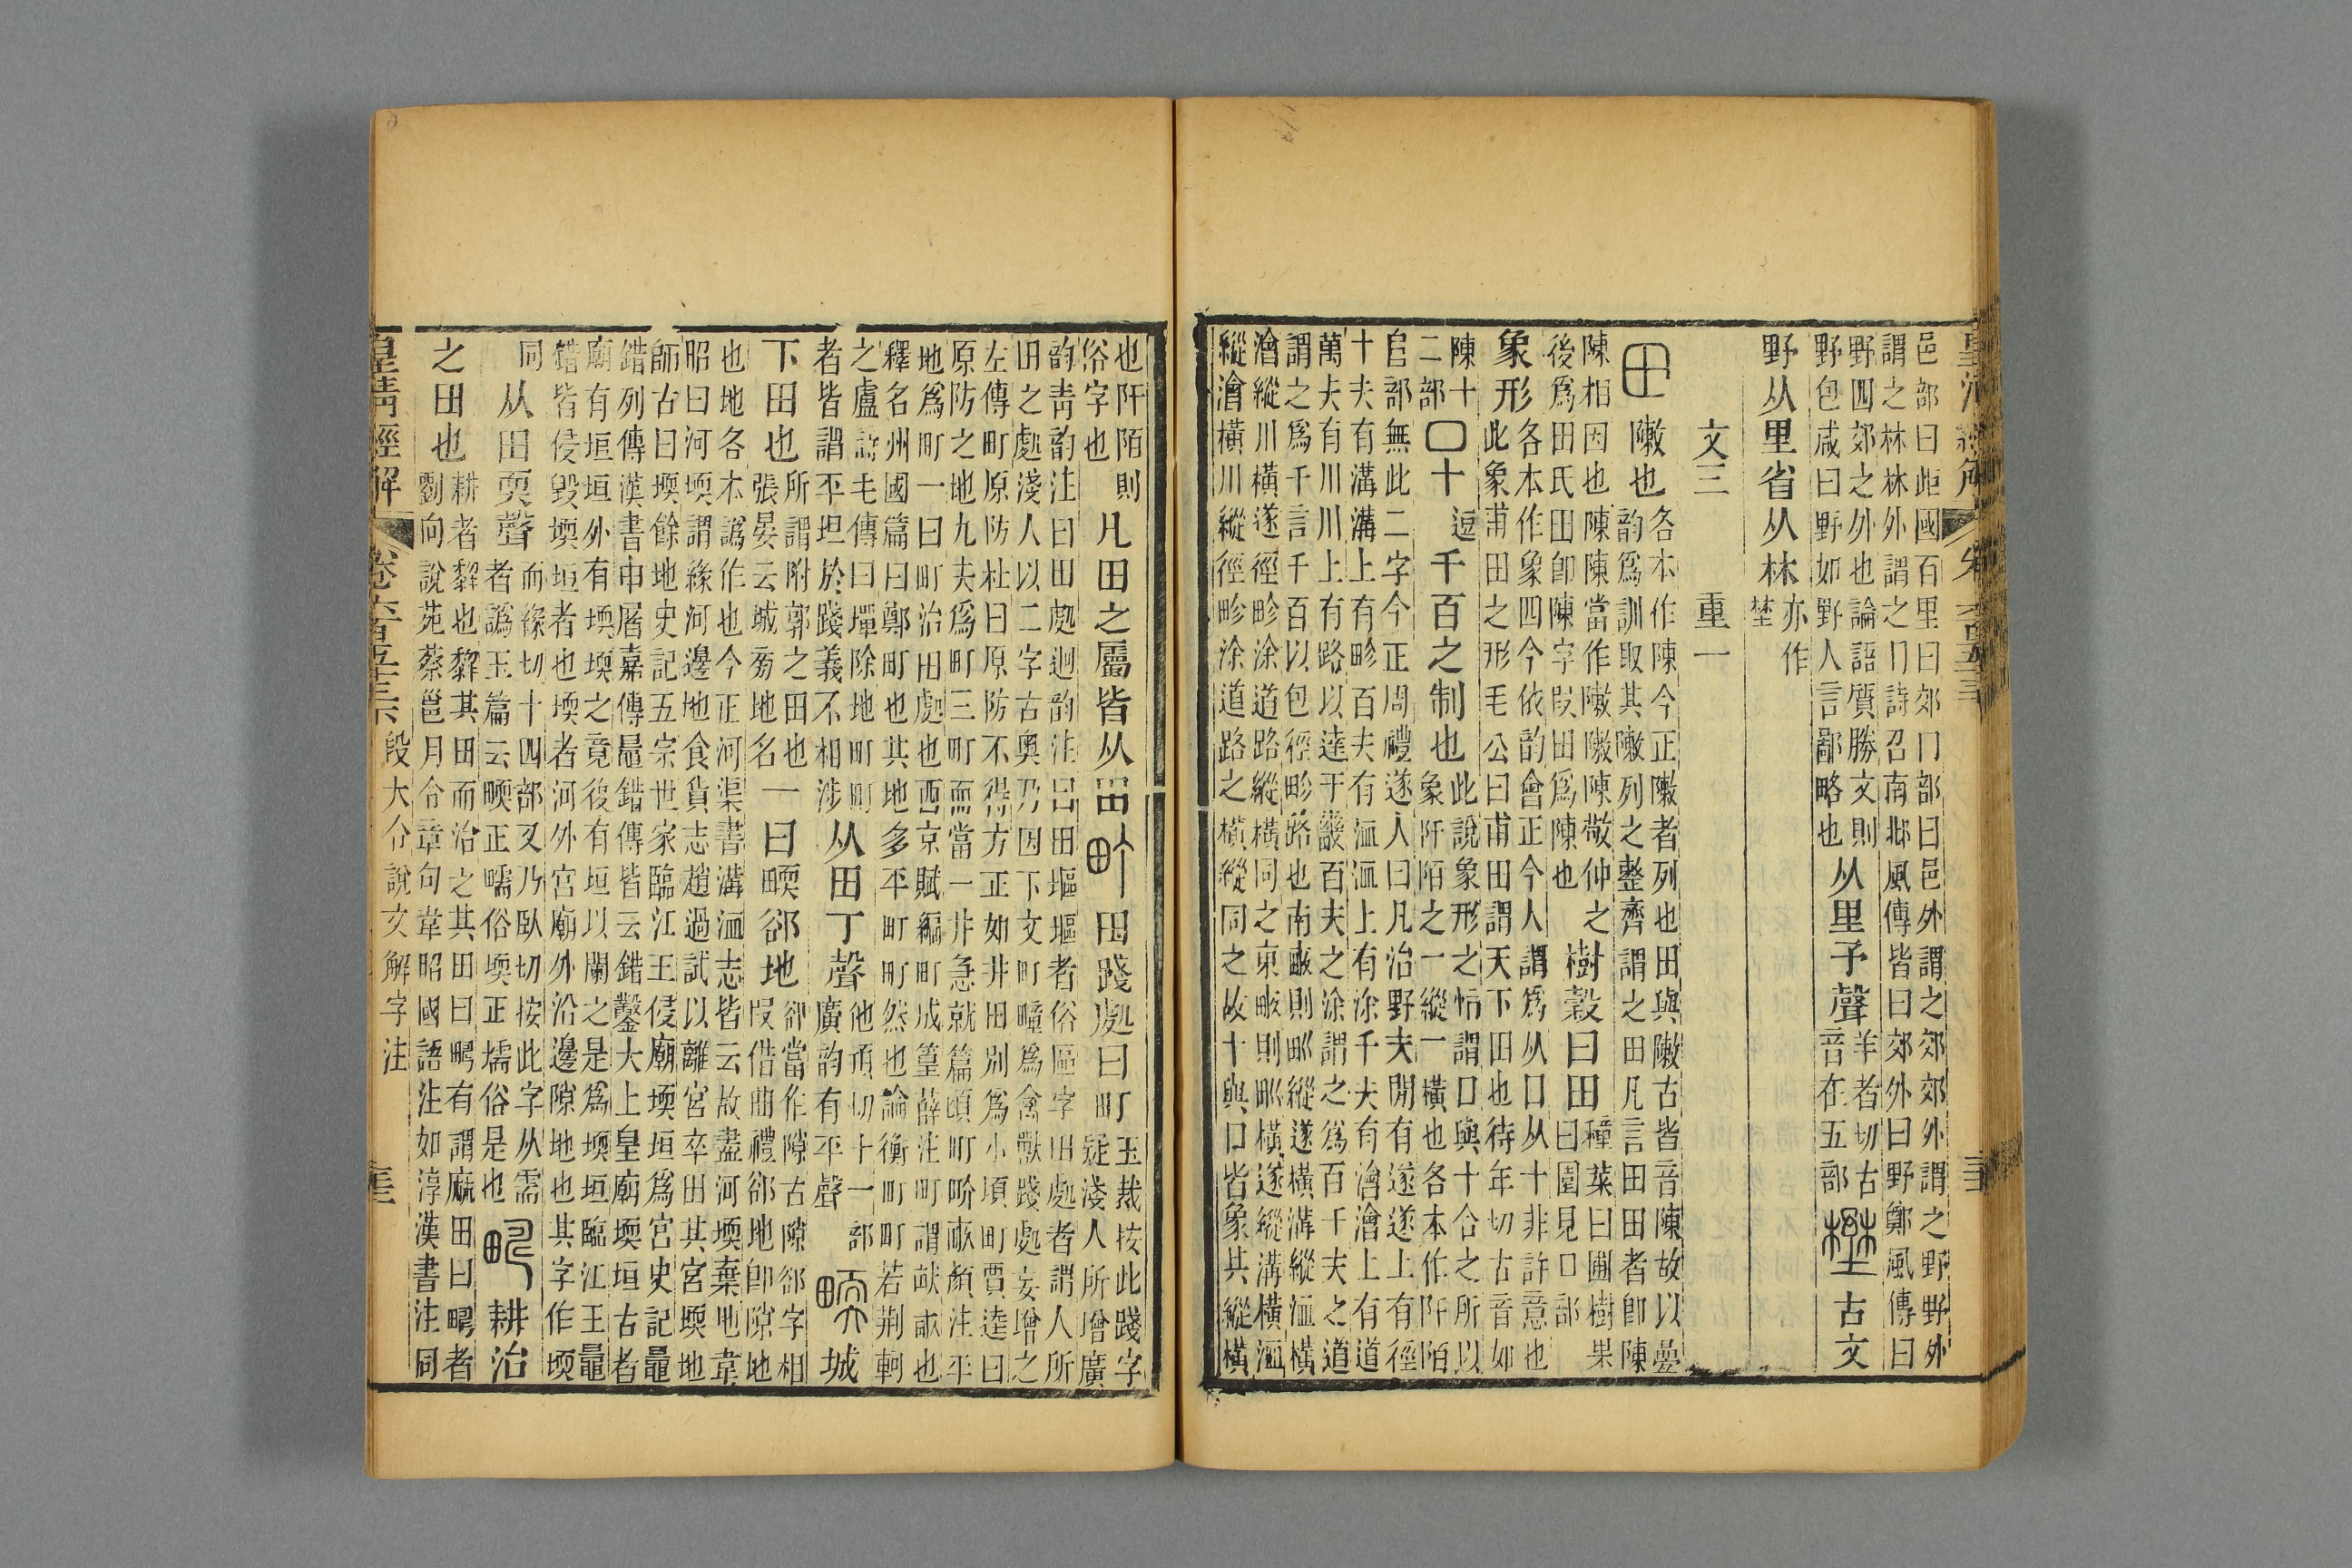 邑部曰歫國百里曰郊冂部曰邑外謂之郊郊外謂之野野外
謂之林林外謂之冂詩召南邶風傳皆曰郊外曰野鄭風傳曰
野四郊之外也論語質勝文則
野包咸曰野如野人言鄙略也
从里予聲
羊者切古
音在五部
壄古文
野从里省从林
亦作
埜
文三 重一
田敶也
各本作陳今正敶者列也田與敶古皆音陳故以曡
韵爲訓取其敶列之整齊謂之田凡言田田者卽陳
陳相因也陳陳當作敶敶陳敬仲之
後爲田氏田卽陳字叚田爲陳也
樹穀曰田
種菜曰圃樹果
曰園見囗部
象形
各本作象四今依韵會正今人謂爲从囗从十非許意也
此象甫田之形毛公曰甫田謂天下田也待年切古音如
陳十
二部
囗十
逗
千百之制也
此說象形之恉謂囗與十合之所以
象阡陌之一縱一橫也各本作阡陌
𨸏部無此二字今正周禮遂人曰凡治野夫閒有遂遂上有徑
十夫有溝溝上有畛百夫有洫洫上有涂千夫有澮澮上有道
萬夫有川川上有路以達于畿百夫之涂謂之爲百千夫之道
謂之爲千言千百以包徑畛路也南畞則畎縱遂橫溝縱洫橫
澮縱川橫遂徑畛涂道路縱橫同之東畞則畎橫遂縱溝橫洫
縱澮橫川縱徑畛涂道路之橫縱同之故十與囗皆象其縱橫
也阡陌則
俗字也
凡田之屬皆从田
町田踐処曰町
玉裁按此踐字
疑淺人所增廣
韵靑韵注曰田処迥韵注曰田堰堰者俗區字田処者謂人所
田之處淺人以二字古奧乃因下文町疃爲禽獸踐処妄增之
左傳町原防杜曰原防不得方正如井田別爲小頃町賈逵曰
原防之地九夫爲町三町而當一井急就篇頃町畍畞顏注平
地爲町一曰町治田處也西京賦編町成篁薛注町謂畎畞也
釋名州國篇曰鄭町也其地多平町町然也論衡町町若荆軻
之廬詩毛傳曰墠除地町町
者皆謂平坦於踐義不相涉
从田丁聲
他頂切十一部
廣韵有平聲
畹城
下田也
所謂附郭之田也
張晏云城旁地名
一曰畹郤地
郤當作隙古隙郤字相
叚借曲禮郤地卽隙地
也地各本譌作也今正河渠書溝洫志皆云故盡河堧棄地韋
昭曰河堧謂緣河邊地食貨志趙過試以離宮卒田其宮堧地
師古曰堧餘地史記五宗世家臨江王侵廟堧垣爲宮史記鼂
錯列傳漢書申屠嘉傳鼂錯傳皆云錯鑿大上皇廟堧垣古者
廟有垣垣外有堧堧之竟復有垣以闌之是爲堧垣臨江王鼂
錯皆侵毀堧垣者也堧者河外宮廟外沿邊隙地也其字作堧
同
从田耎聲
而緣切十四部又乃臥切按此字从需
者譌玉篇云畹正𤲬俗堧正壖俗是也
耕治
之田也
耕者犂也犂其田而治之其田曰𤲞有謂麻田曰𤲞者
劉向說苑蔡邕月令章句韋昭國語注如淳漢書注同
皇淸經解 卷六百五十三 段大令說文解字注